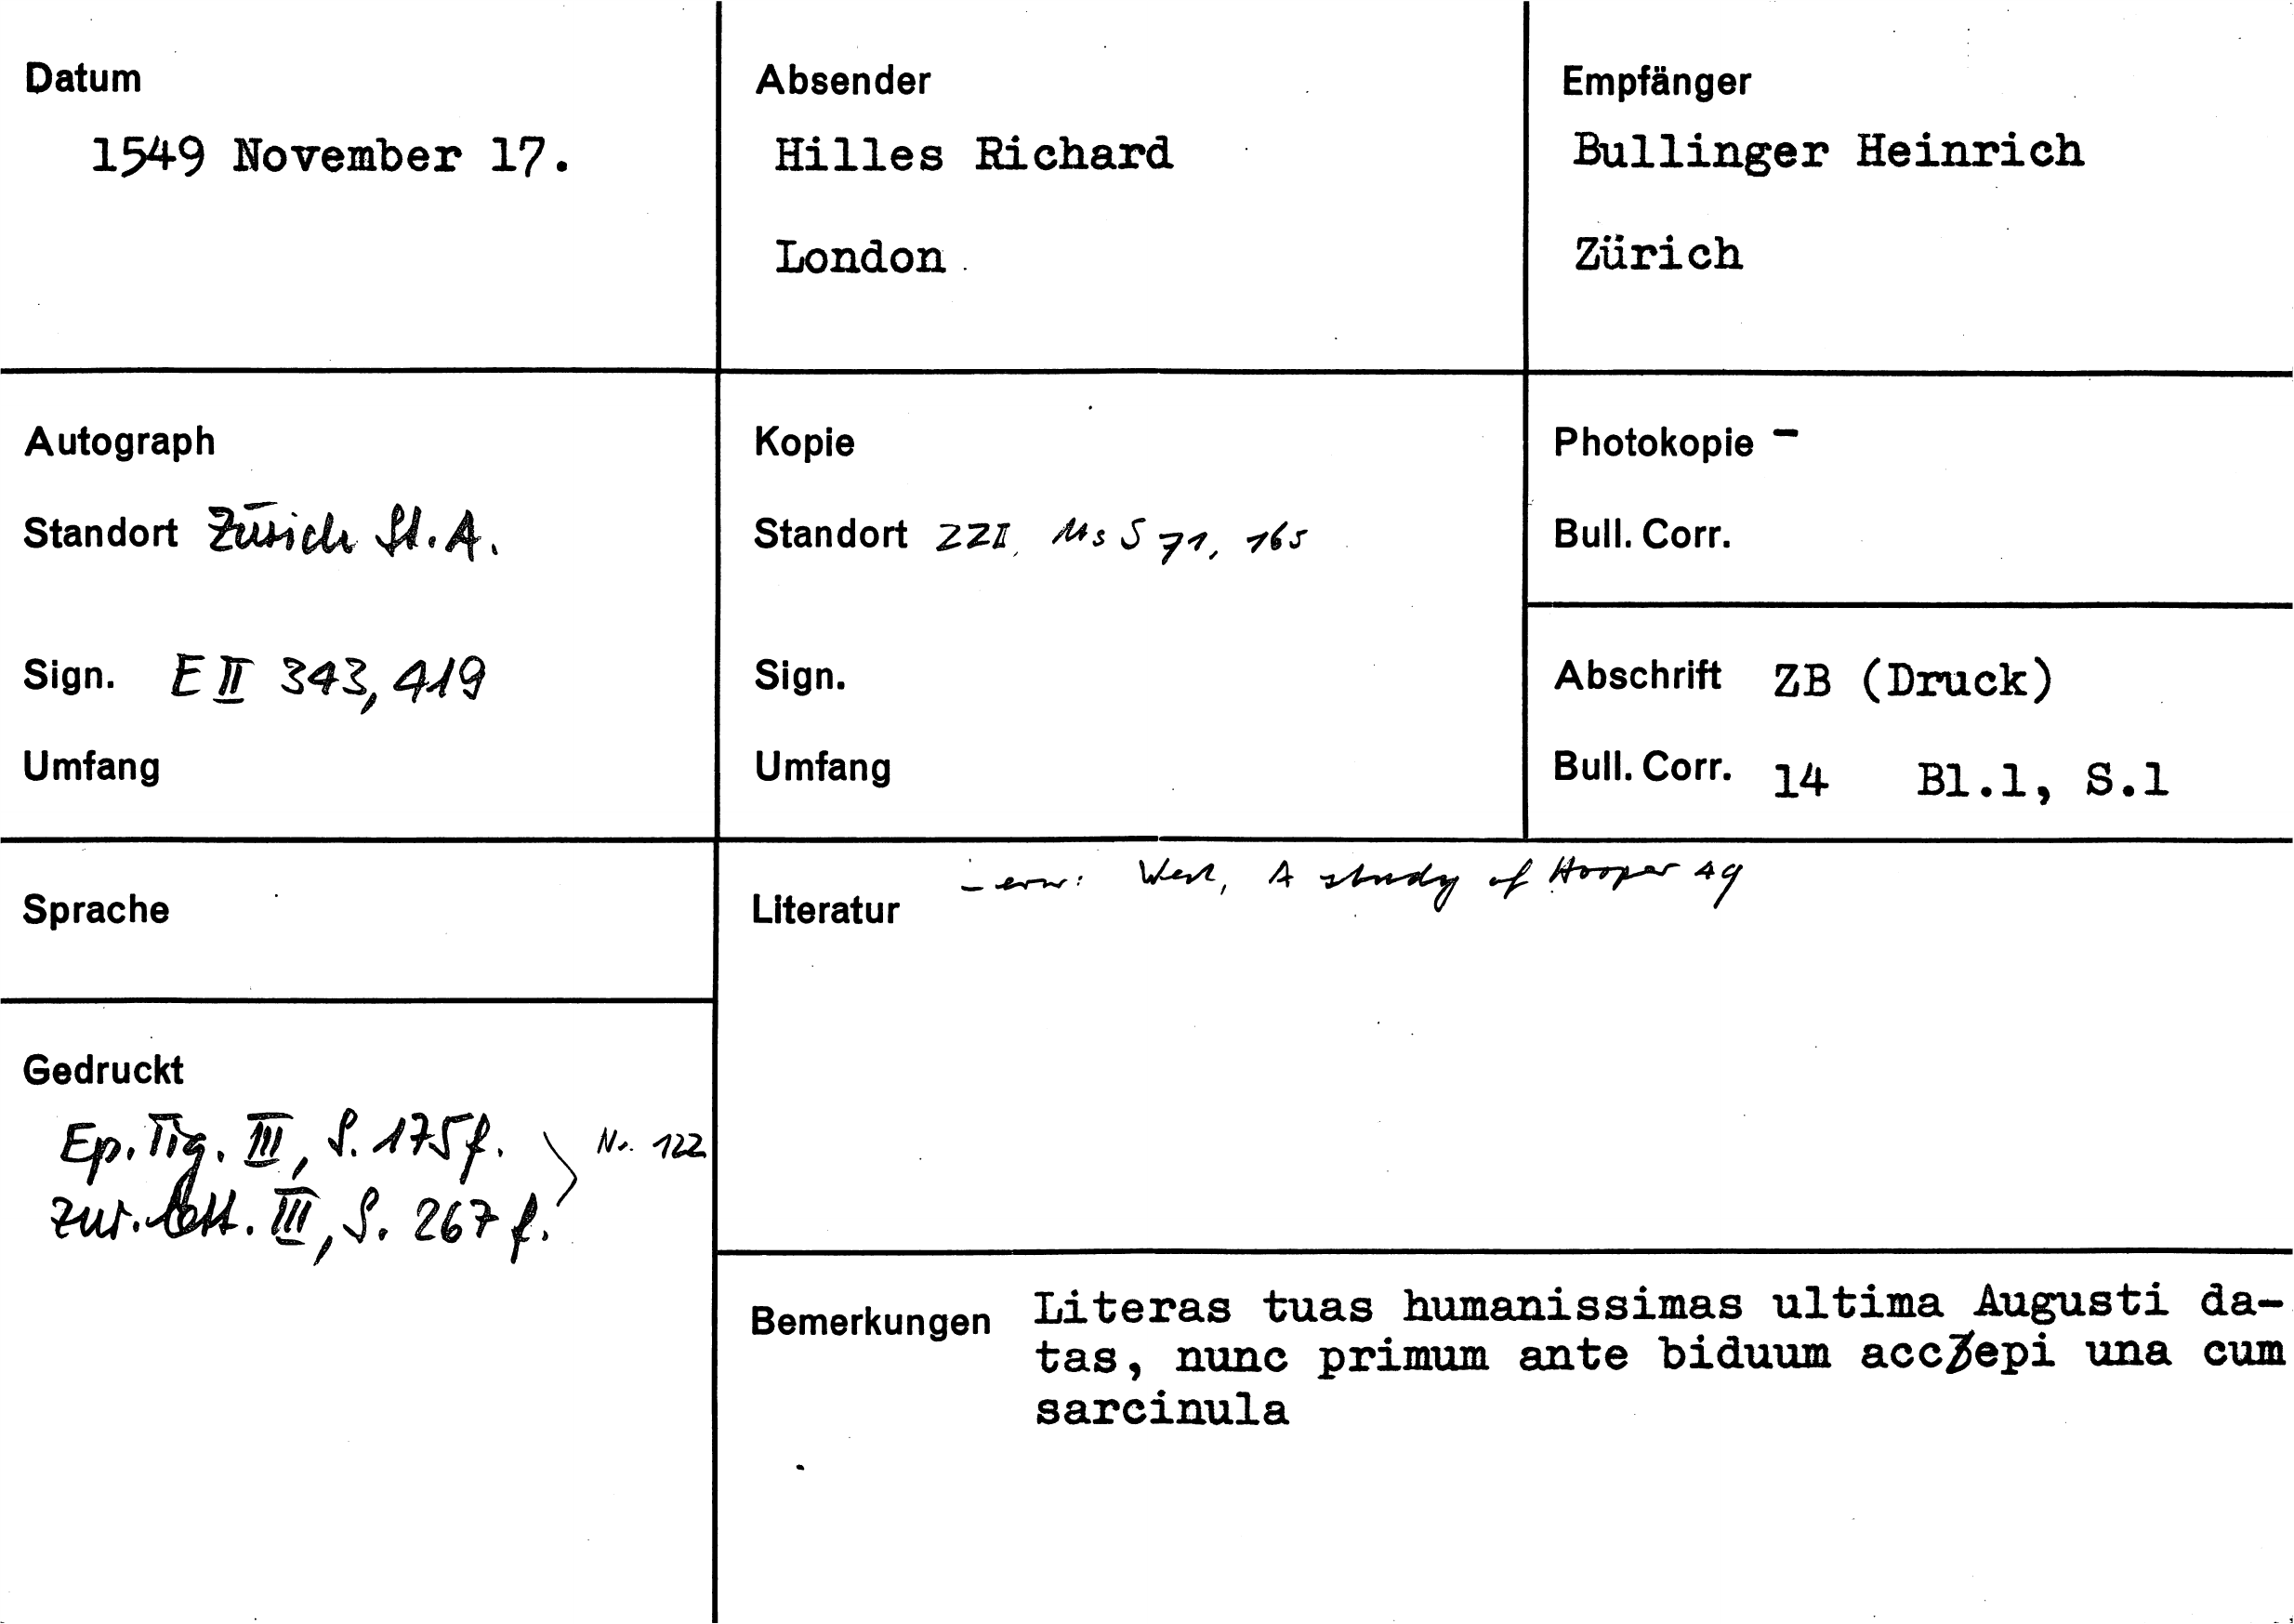 Datum
1549 November 17.
Absender
Hilles Richard
London
Empfänger
Bullinger Heinrich
Zürich
Autograph
Standort Zürich St.A.
Sign. E II 343, 419
Umfang
Kopie
Standort ZZII, Ms S 71, 165
Sign.
Umfang
Photokopie -
Bull. Corr.
Abschrift ZB (Druck)
Bull. Corr. 14 Bl.1, S.1
Sprache
Gedruckt
Ep. Tig. III, S. 175 f.
Zur. Lett. III, S. 267 f.
Nr. 122
Literatur - erw: West, A study of Hooper 49
Bemerkungen Literas tuas humanissimas ultima Augusti da-
tas, nunc primum ante biduum accepi una cum
sarcinula